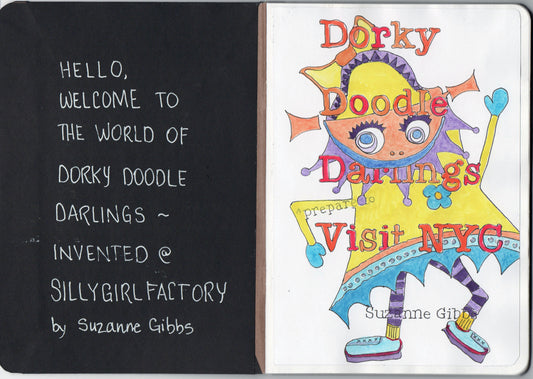 HELLO,
WELCOME TO
THE WORLD OF
DORKY DOODLE
DARLINGS ~
INVENTED @
SILLYGIRLFACTORY
by Suzanne Gibbs
Dorky
Doodle
Darlings
^prepare to
Visit NYC
Suzanne Gibbs